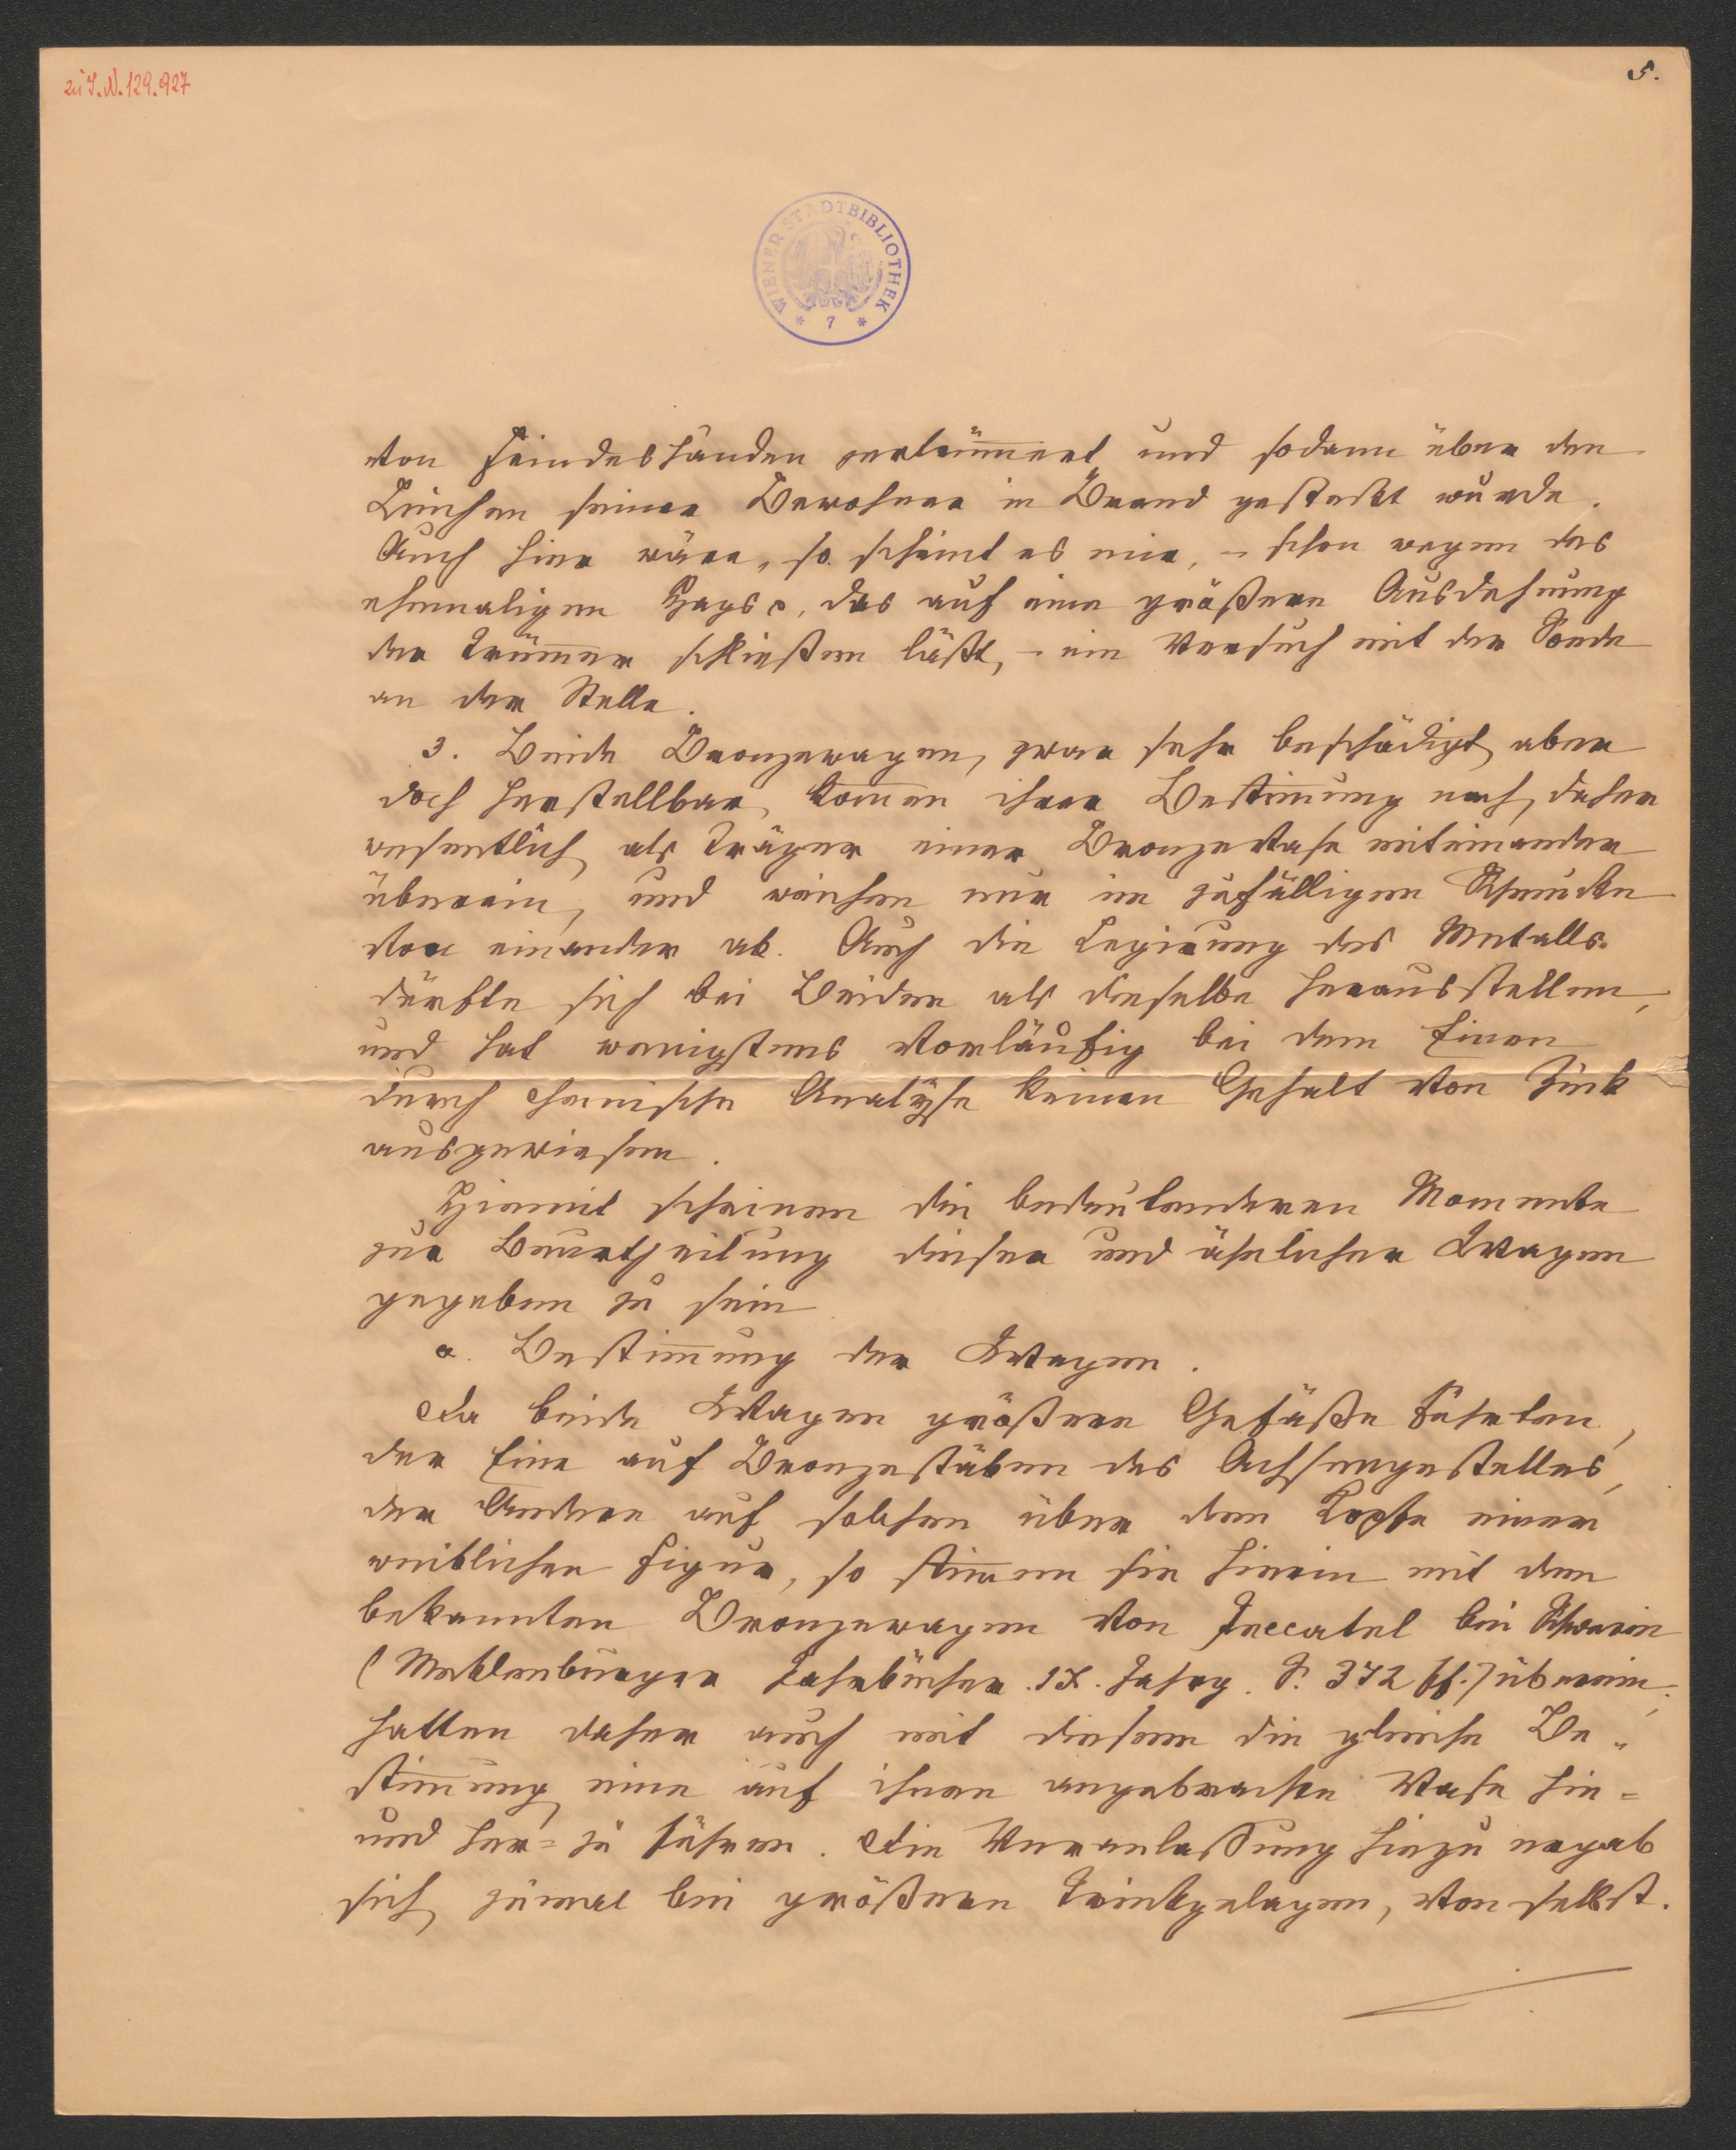 zu I.N. 129.927
5.
WIENER STADTBIBLIOTHEK
* 7 *
von Feindeshänden zertrümmert und sodann über den
Leichen seiner Bewohner in Brand gesteckt wurde.
Auch hier wäre, so scheint es mir, – schon wegen des
ehemaligen das auf eine größere Ausdehnung
der Trümmer schließen läßt, – ein Versuch mit der Sonde
an der Stelle.
3. Beide Bronzewagen, zwar sehr beschädigt, aber
doch herstellbar, kommen ihrer Bestimmung nach, daher
wesentlich, als Träger einer Bronzevase miteinander
überein, und weichen nur im zufälligen Schmucke
von einander ab. Auch die Legirung des Metalls
dürfte sich bei Beiden als dieselbe herausstellen,
und hat wenigstens vorläufig bei dem Einen
durch chemische Analÿse keinen Gehalt von Zink
ausgewiesen.
Hiemit scheinen die bedeutenderen Momente
zur Beurtheilung dieser und ähnlicher Wagen
gegeben zu sein
a. Bestimmung der Wagen.
Da beide Wagen größere Gefäße führten,
der Eine auf Bronzestäben des Achsengestelles,
der Andere auf solchen über dem Kopfe einer
weiblichen Figur, so stimmen sie hierin mit dem
bekannten Bronzewagen von Peccatel bei Schwerin
(Meklenburger Jahrbücher. IX. Jahrg. S. 372 ff.) überein;
hatten daher auch mit diesem die gleiche Be-
stimmung eine auf ihnen angebrachte Vase hin=
und her= zu führen. Die Veranlassung hiezu ergab
sich, zumal bei größeren Trinkgelagen, von selbst.